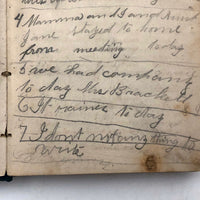 4 Mamma and I and Aunt
Jane stayed to home
from meeting today
5 we had company
to day Mrs
6 It rained to day
7 I dont no any thing to
write